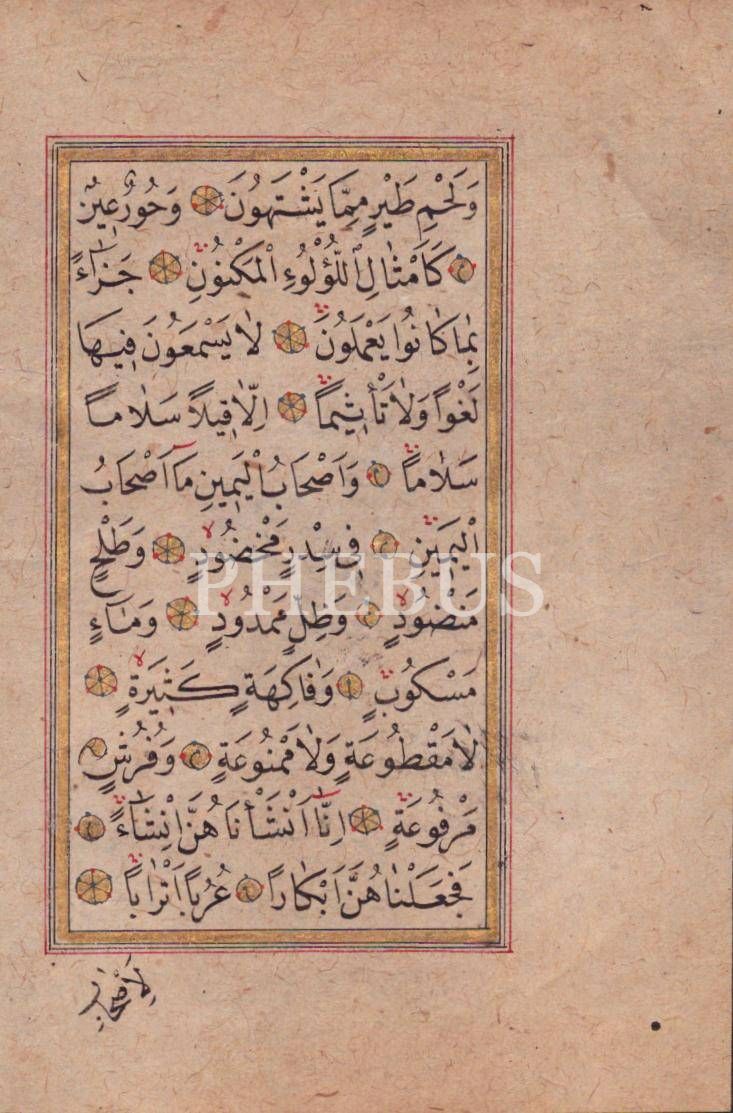 وَلَحْمِ طَيْرٍ مِمَّا يَشْتَهُونَ وَحُورٌ عِينٌ
كَاَمْثَالِ اللُّؤْلُوءِ الْمَكْنُونِ جَزَاءً
بِمَا كَانُوا يَعْمَلُونَ لَا يَسْمَعُونَ فِيهَا
لَغْوًا وَلَا تَأْثِيمًا اِلَّا قِيلًا سَلَامًا
سَلَامًا وَاَصْحَابُ الْيَمِينِ مَا اَصْحَابُ
الْيَمِينِ فِى سِدْرٍ مَخْضُودٍ وَطَلْحٍ
مَنْضُودٍ وَظِلٍّ مَمْدُودٍ وَمَاءٍ
مَسْكُوبٍ وَفَاكِهَةٍ كَثِيرَةٍ
لَا مَقْطُوعَةٍ وَلَا مَمْنُوعَةٍ وَفُرُشٍ
مَرْفُوعَةٍ اِنَّا اَنْشَأْنَاهُنَّ اِنْشَاءً
فَجَعَلْنَاهُنَّ اَبْكَارًا عُرُبًا اَتْرَابًا
لِاَصْحَابِ
PHEBUS